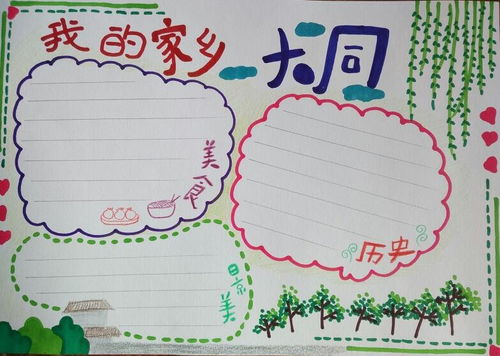 我的家乡 大同
美食
历史
景美